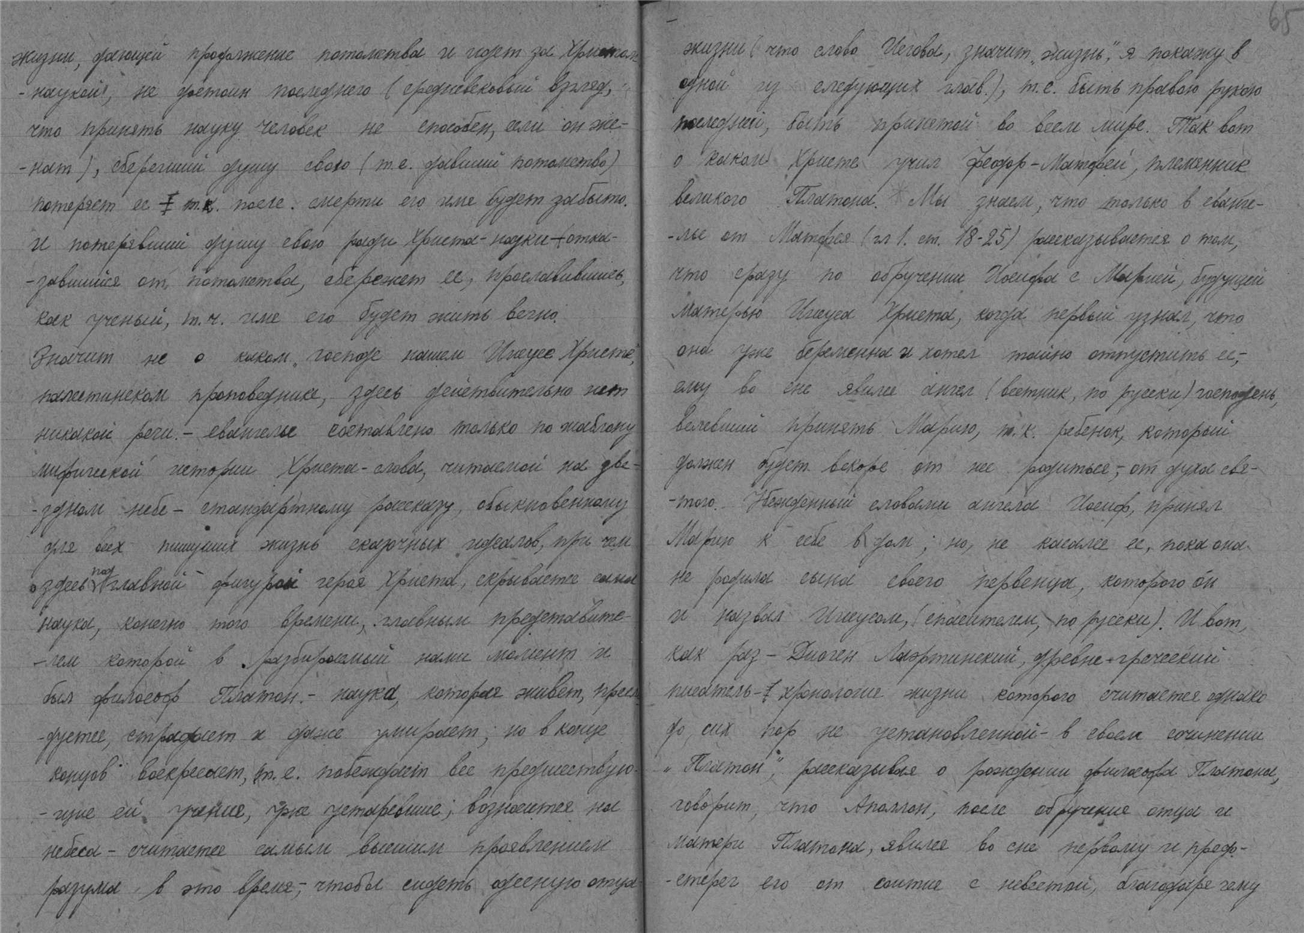 жизни, дающей продолжение потомства и идет за Христом
-наукой, не достоин последнего (средневековый взгляд,
что принять науку человек не способен, если он же-
-нат), сберегший душу свою (т.е. давший потомство)
потеряет ее т.к. после смерти его имя будет забыто.
и потерявший душу свою ради Христа-науки отка-
-завшийся от потомства, сбережет ее, прославившись,
как ученый, т.ч. имя его будет жить вечно.
Значит не о каком господе нашем Иисусе Христе,
палестинском проповеднике, здесь действительно нет
никакой речи. - евангелье составлено только по шаблону
мифической истории Христа-слова, читаемой на зве-
-здном небе - стандартному рассказу, обыкновенному
для всех пишущих жизнь сказочных идеалов, при чем
здесь под главной фигурой героя Христа, скрывается сама
наука, конечно того времени, главным представите-
-лем которой в разбираемый нами момент и
был философ Платон. - наука, которая живет, пресле-
-дуется, страдает и даже умирает; но в конце
концов воскресает, т.е. побеждает все предшествую-
-щие ей учения, уже устаревшие; возносится на
небеса - считается самым высшим проявлением
разума в это время, чтобы сидеть одесную отца
65
жизни (что слово Иегова, значит "жизнь", я покажу в
одной из следующих глав.), т.е. быть правою рукою
последней, быть принятой во всем мире. Так вот
о каком Христе учил Феодор-Матфей, племянник
великого Платона. * Мы знаем, что только в еванге-
-лье от Матфея (гл 1. ст. 18-25) рассказывается о том,
что сразу по обручении Иосифа с Марией, будущей
матерью Иисуса Христа, когда первый узнал, что
она уже беременна и хотел тайно отпустить ее,
ему во сне явился ангел (вестник, по русски) господень,
велевший принять Марию, т.к. ребенок, который
должен будет вскоре от нее родиться, от духа свя-
-того. Убежденный словами ангела Иосиф, принял
Марию к себе в дом; но, не касался ее, пока она
не родила сына своего первенца, которого он
и назвал Иисусом, (спасителем, по русски). И вот,
как раз - Диоген Лаэртинский, древне-греческий
писатель - хронология жизни которого считается однако
до сих пор не установленной - в своем сочинении
"Платон", рассказывая о рождении философа Платона,
говорит, что Аполлон, после обручения отца и
матери Платона, явился во сне первому и пред-
-стерег его от соития с невестой, благодаря чему